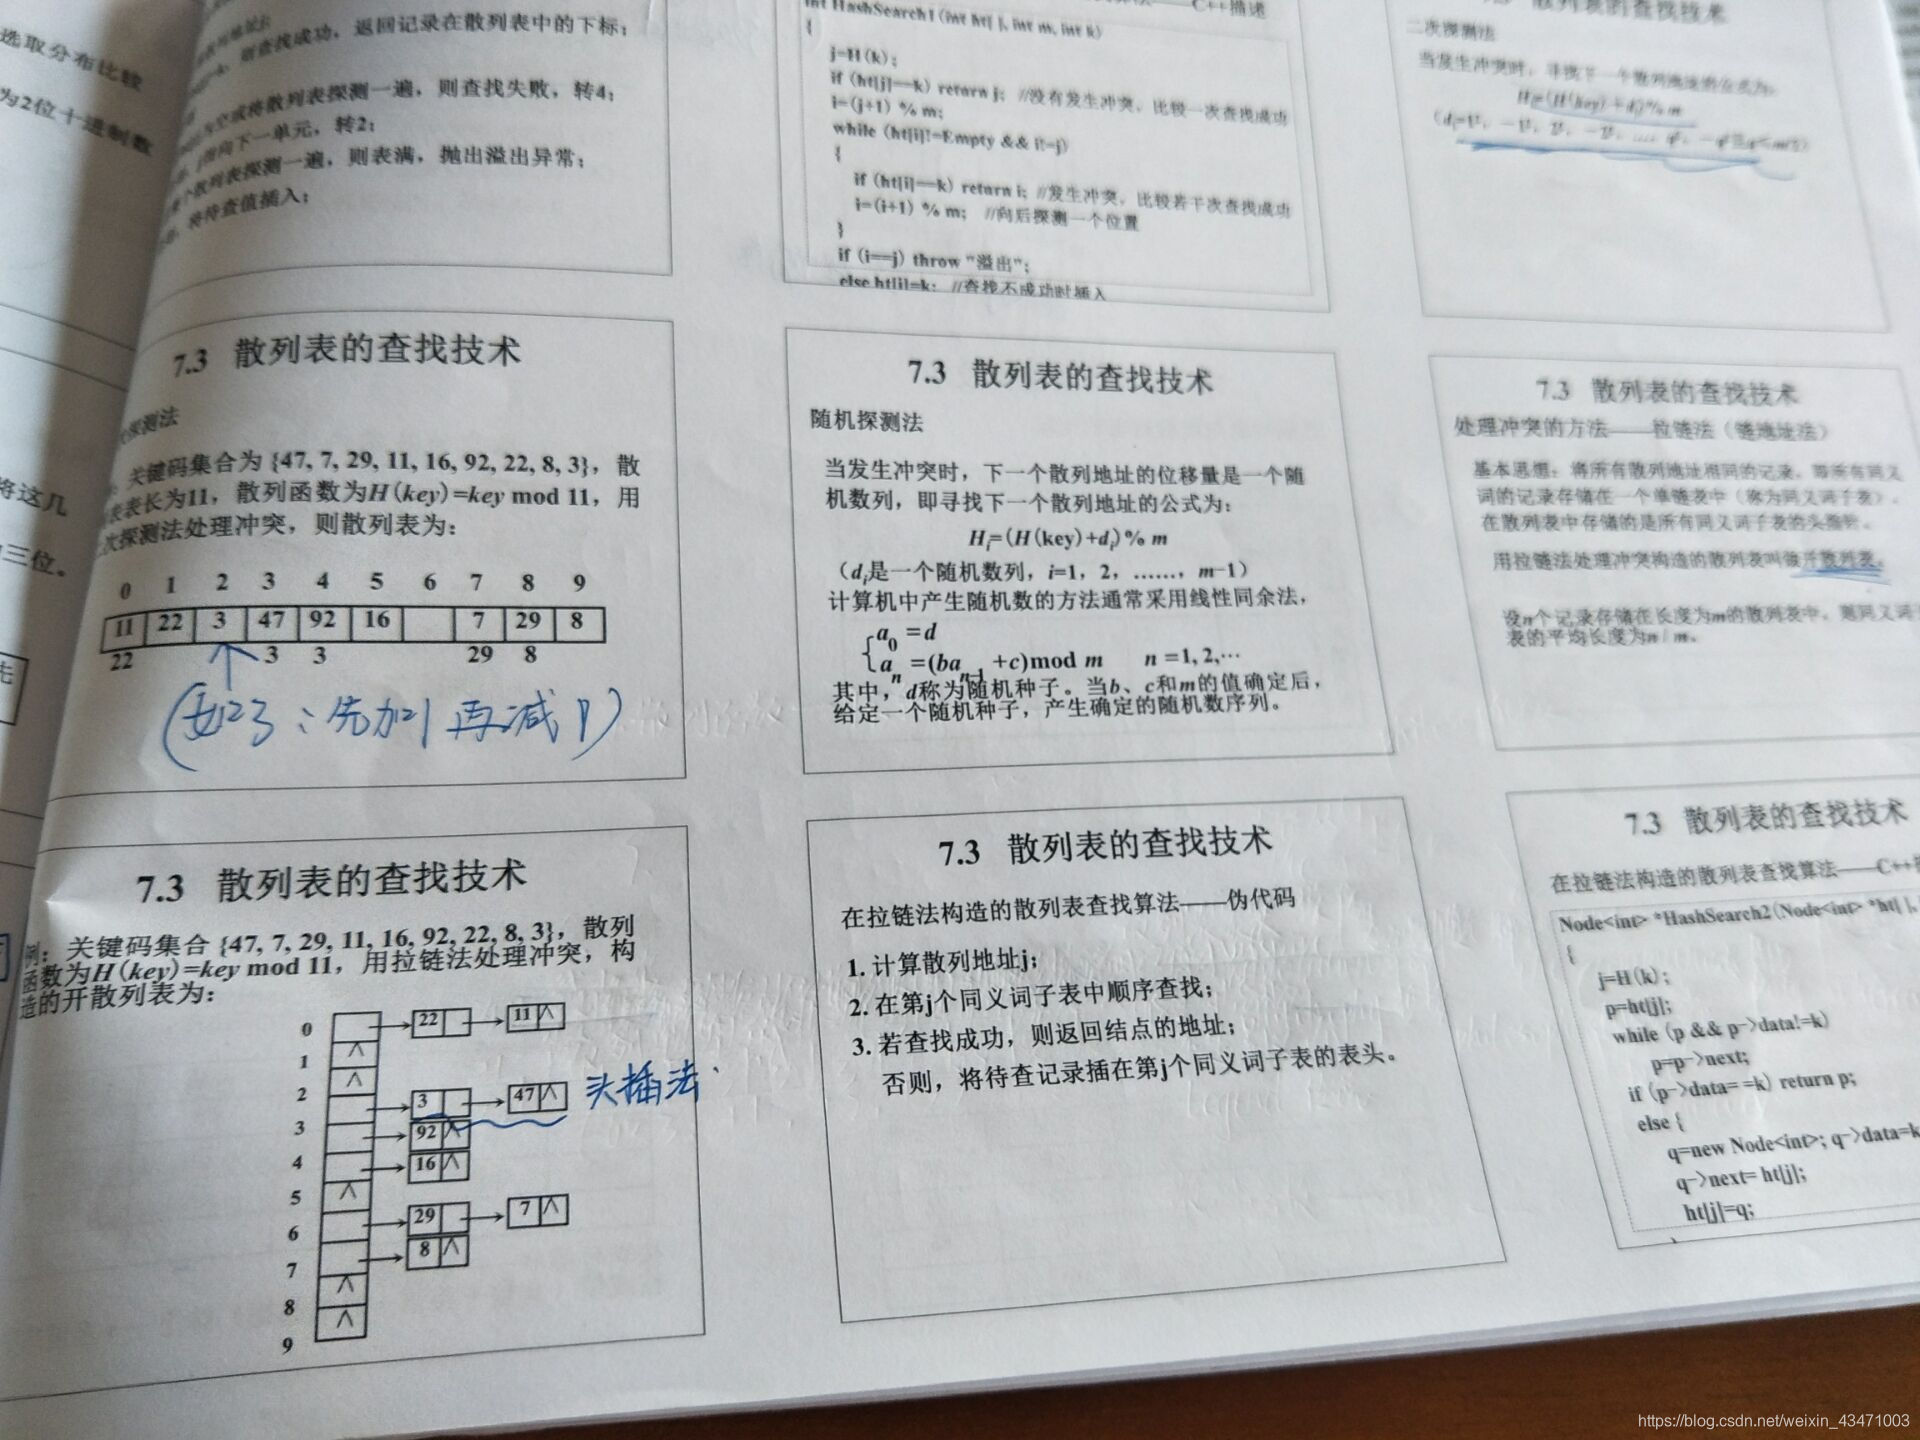 选取分布比较
为2位十进制数
将这几
三位。
则查找成功，返回记录在散列表中的下标；
为空或将散列表探测一遍，则查找失败，转4；
指向下一单元，转2；
散列表探测一遍，则表满，抛出溢出异常；
将待查值插入；
C++描述
int HashSearch1(int ht[ ], int m, int k)
{
j=H(k);
if (ht[j]==k) return j; //没有发生冲突，比较一次查找成功
i=(j+1) % m;
while (ht[i]!=Empty && i!=j)
{
if (ht[i]==k) return i; //发生冲突，比较若干次查找成功
i=(i+1) % m; //向后探测一个位置
}
if (i==j) throw "溢出";
else ht[i]=k; //查找不成功时插入
散列表的查找技术
二次探测法
当发生冲突时，寻找下一个散列地址的公式为：
Hi=(H(key)+di)% m
7.3 散列表的查找技术
探测法
关键码集合为 {47, 7, 29, 11, 16, 92, 22, 8, 3}，散
表表长为11，散列函数为H(key)=key mod 11，用
次探测法处理冲突，则散列表为：
0 1 2 3 4 5 6 7 8 9
11 22 3 47 92 16 7 29 8
22 3 3 29 8
(如3：先加1再减1)
7.3 散列表的查找技术
随机探测法
当发生冲突时，下一个散列地址的位移量是一个随
机数列，即寻找下一个散列地址的公式为：
Hi=(H(key)+di)% m
（di是一个随机数列，i=1，2，……，m-1）
计算机中产生随机数的方法通常采用线性同余法，
a0 =d
an =(ban-1 +c)mod m n =1, 2,…
其中，d称为随机种子。当b、c和m的值确定后，
给定一个随机种子，产生确定的随机数序列。
7.3 散列表的查找技术
处理冲突的方法——拉链法（链地址法）
基本思想：将所有散列地址相同的记录，即所有同义
词的记录存储在一个单链表中（称为同义词子表），
在散列表中存储的是所有同义词子表的头指针。
用拉链法处理冲突构造的散列表叫做开散列表。
设n个记录存储在长度为m的散列表中，则同义词子
表的平均长度为n / m。
7.3 散列表的查找技术
例：关键码集合 {47, 7, 29, 11, 16, 92, 22, 8, 3}，散列
函数为H(key)=key mod 11，用拉链法处理冲突，构
造的开散列表为：
0 22 11 ∧
1 ∧
∧
2 3 47 ∧ 头插法.
3 92 ∧
4 16 ∧
5 ∧
6 29 7 ∧
7 8 ∧
8 ∧
9 ∧
7.3 散列表的查找技术
在拉链法构造的散列表查找算法——伪代码
1. 计算散列地址j；
2. 在第j个同义词子表中顺序查找；
3. 若查找成功，则返回结点的地址；
否则，将待查记录插在第j个同义词子表的表头。
7.3 散列表的查找技术
在拉链法构造的散列表查找算法——C++
Node<int> *HashSearch2(Node<int> *ht[ ],
{
j=H(k);
p=ht[j];
while (p && p->data!=k)
p=p->next;
if (p->data= =k) return p;
else {
q=new Node<int>; q->data=k
q->next= ht[j];
ht[j]=q;
https://blog.csdn.net/weixin_43471003